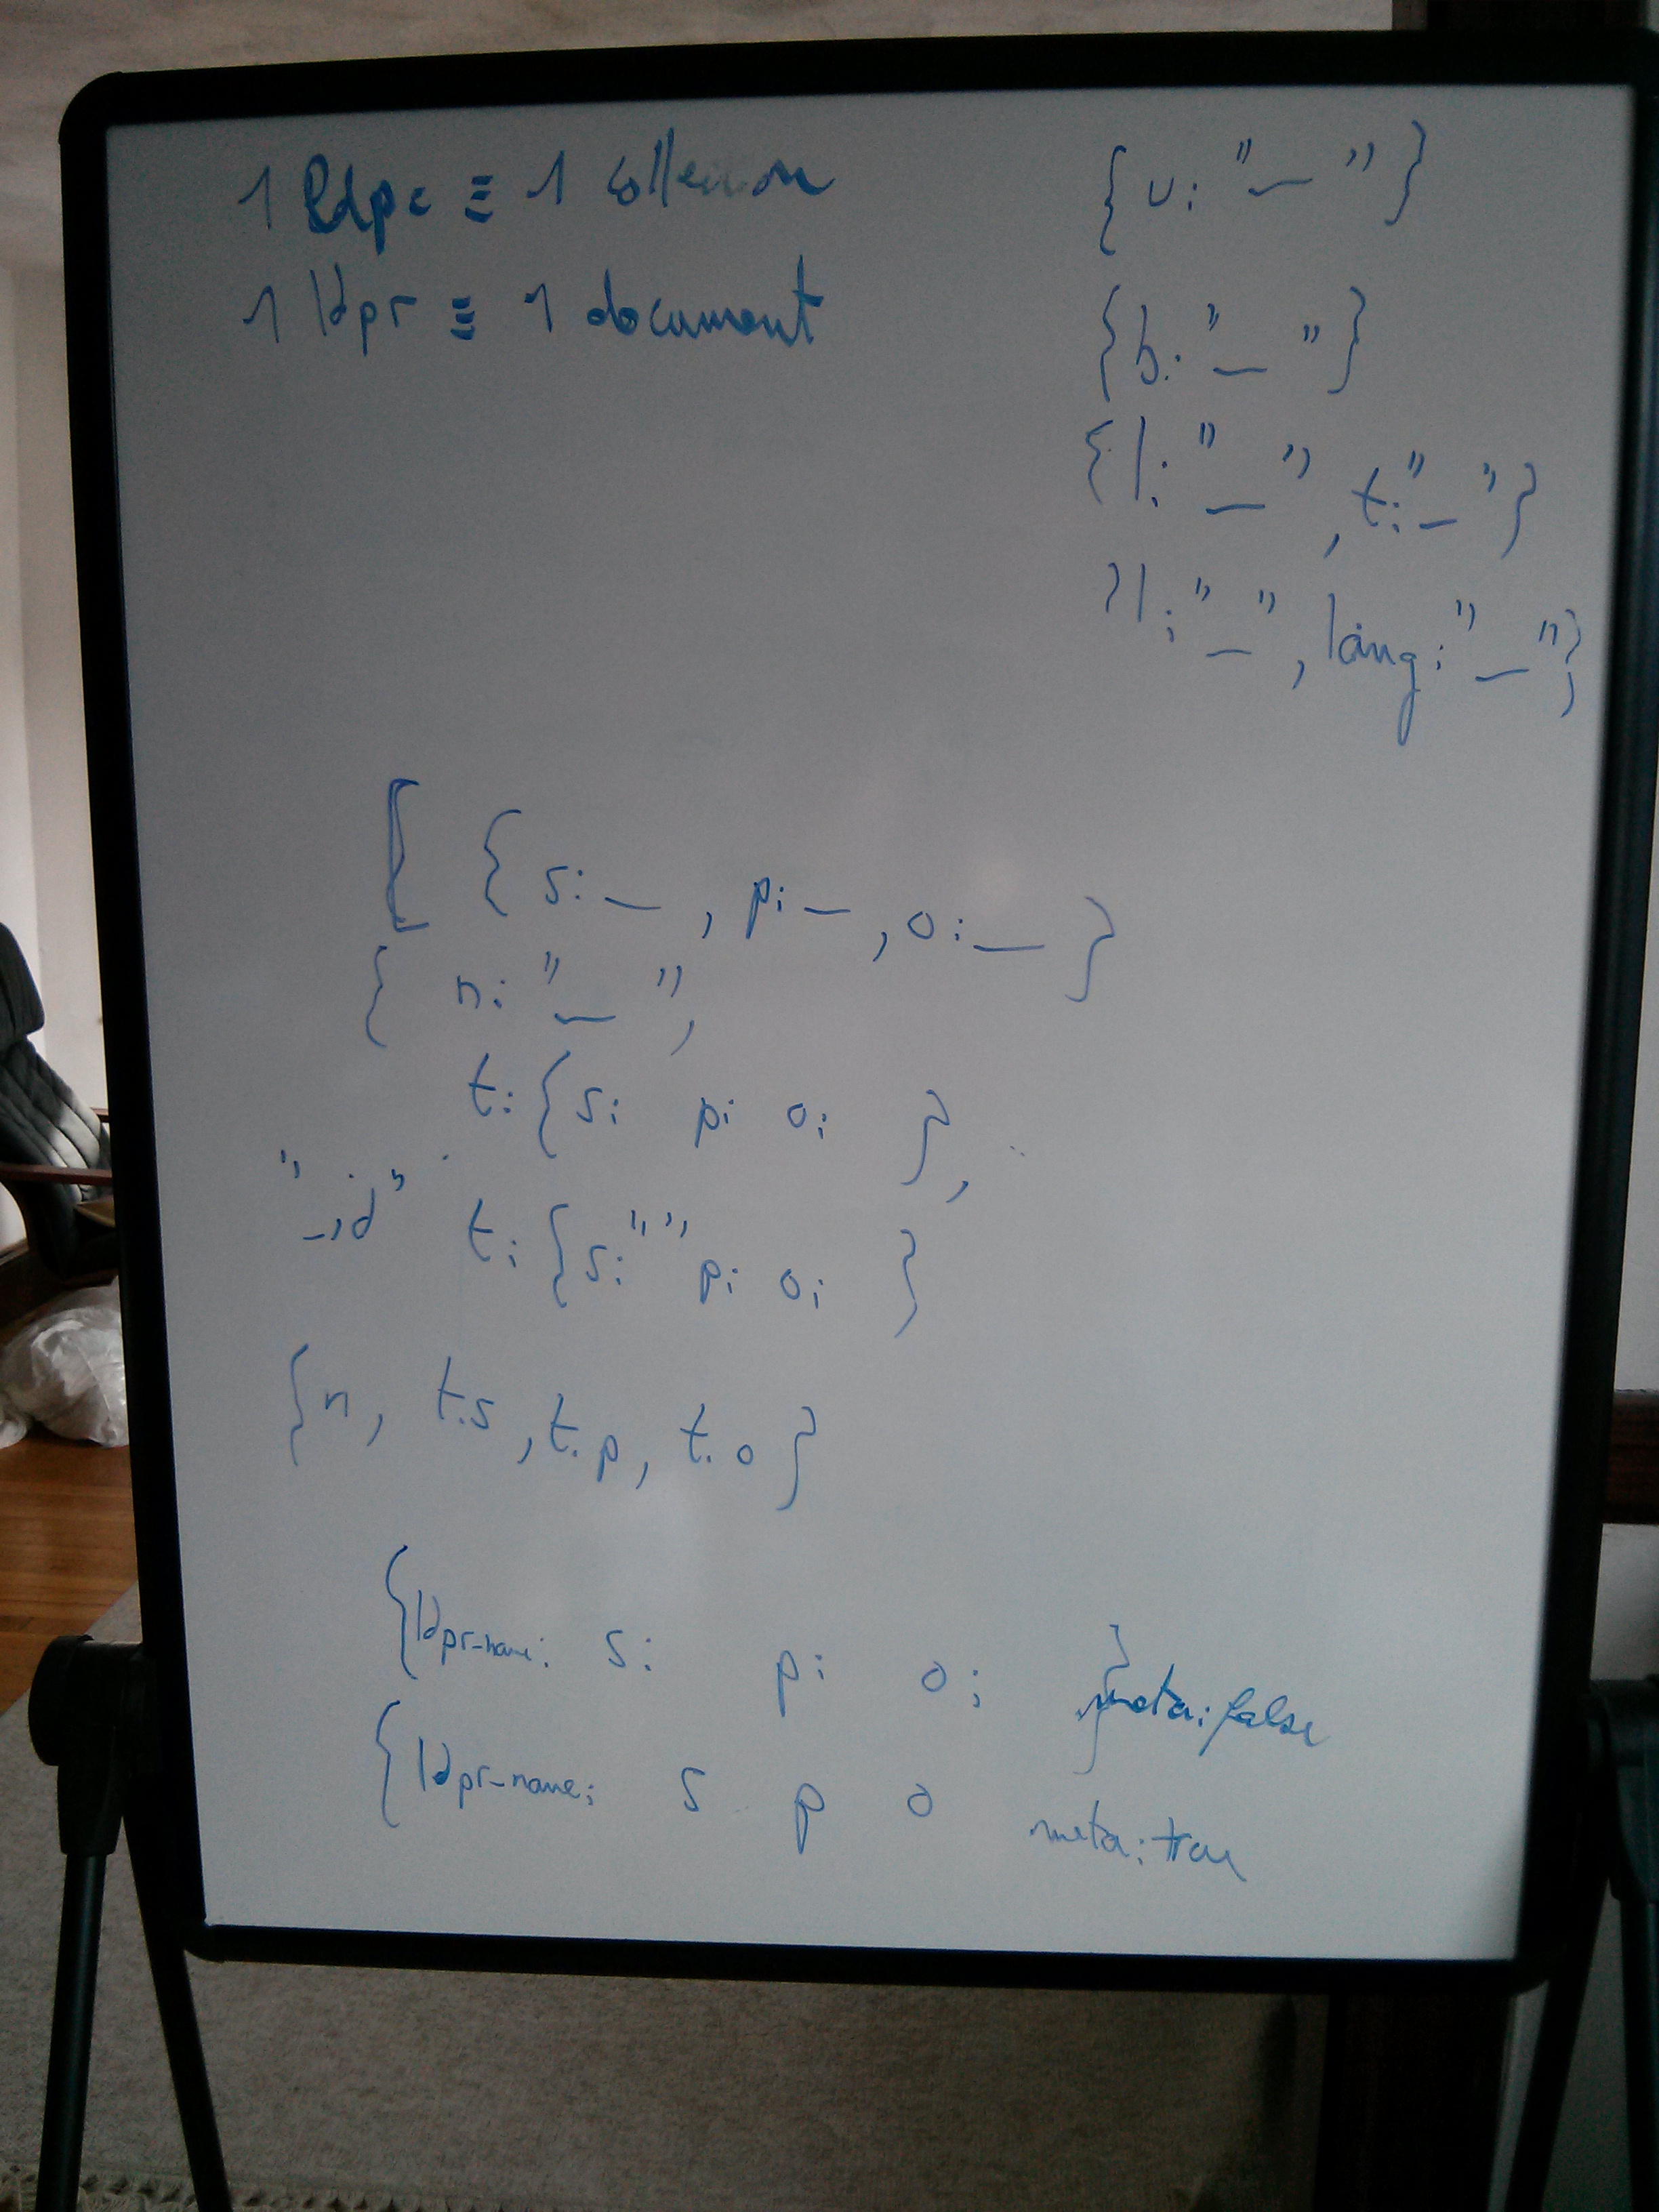 1 ldpc ≡ 1 collection
1 ldpr ≡ 1 document
{u: "_"}
{b: "_"}
{l: "_", t: "_"}
{l: "_", lang: "_"}
[ {s: _, p: _, o: _}
{ n: "_",
t: {s: p: o: },
"_id" t: {s: "", p: o: }
{n, t.s, t.p, t.o}
{ldpr-name: s: p: o: } meta: false
{ldpr-name: s p o meta: true